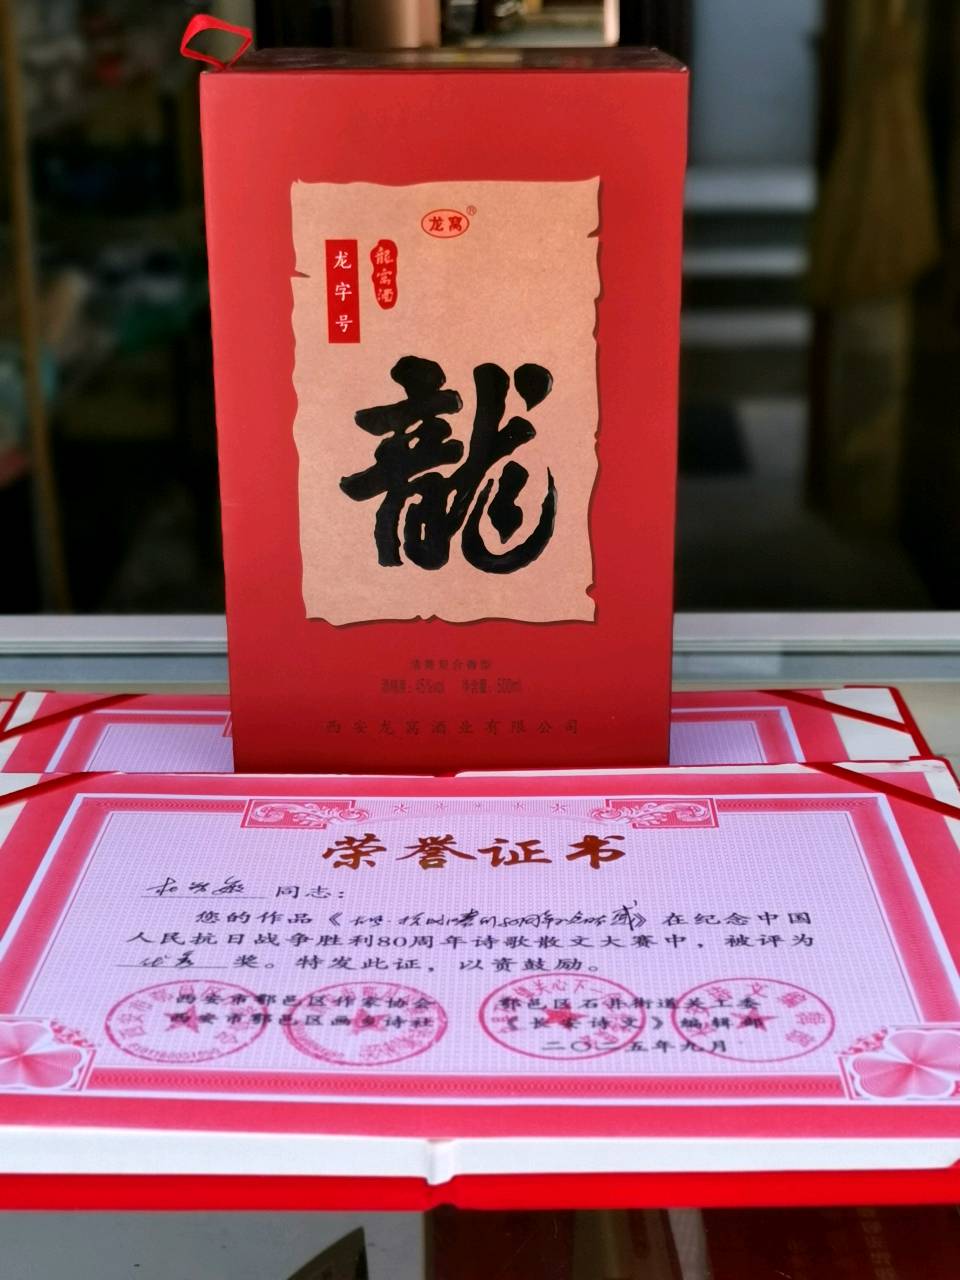 龙窝®
龙字号
龍窩酒
龍
清酱复合香型
酒精度：45%vol 净含量：500ml
西安龙窝酒业有限公司
荣誉证书
同志：
您的作品《》在纪念中国
人民抗日战争胜利80周年诗歌散文大赛中，被评为
优秀奖。特发此证，以资鼓励。
西安市鄠邑区作家协会 鄠邑区石井街道关工委
西安市鄠邑区画乡诗社 《长安诗文》编辑部
二〇二五年九月